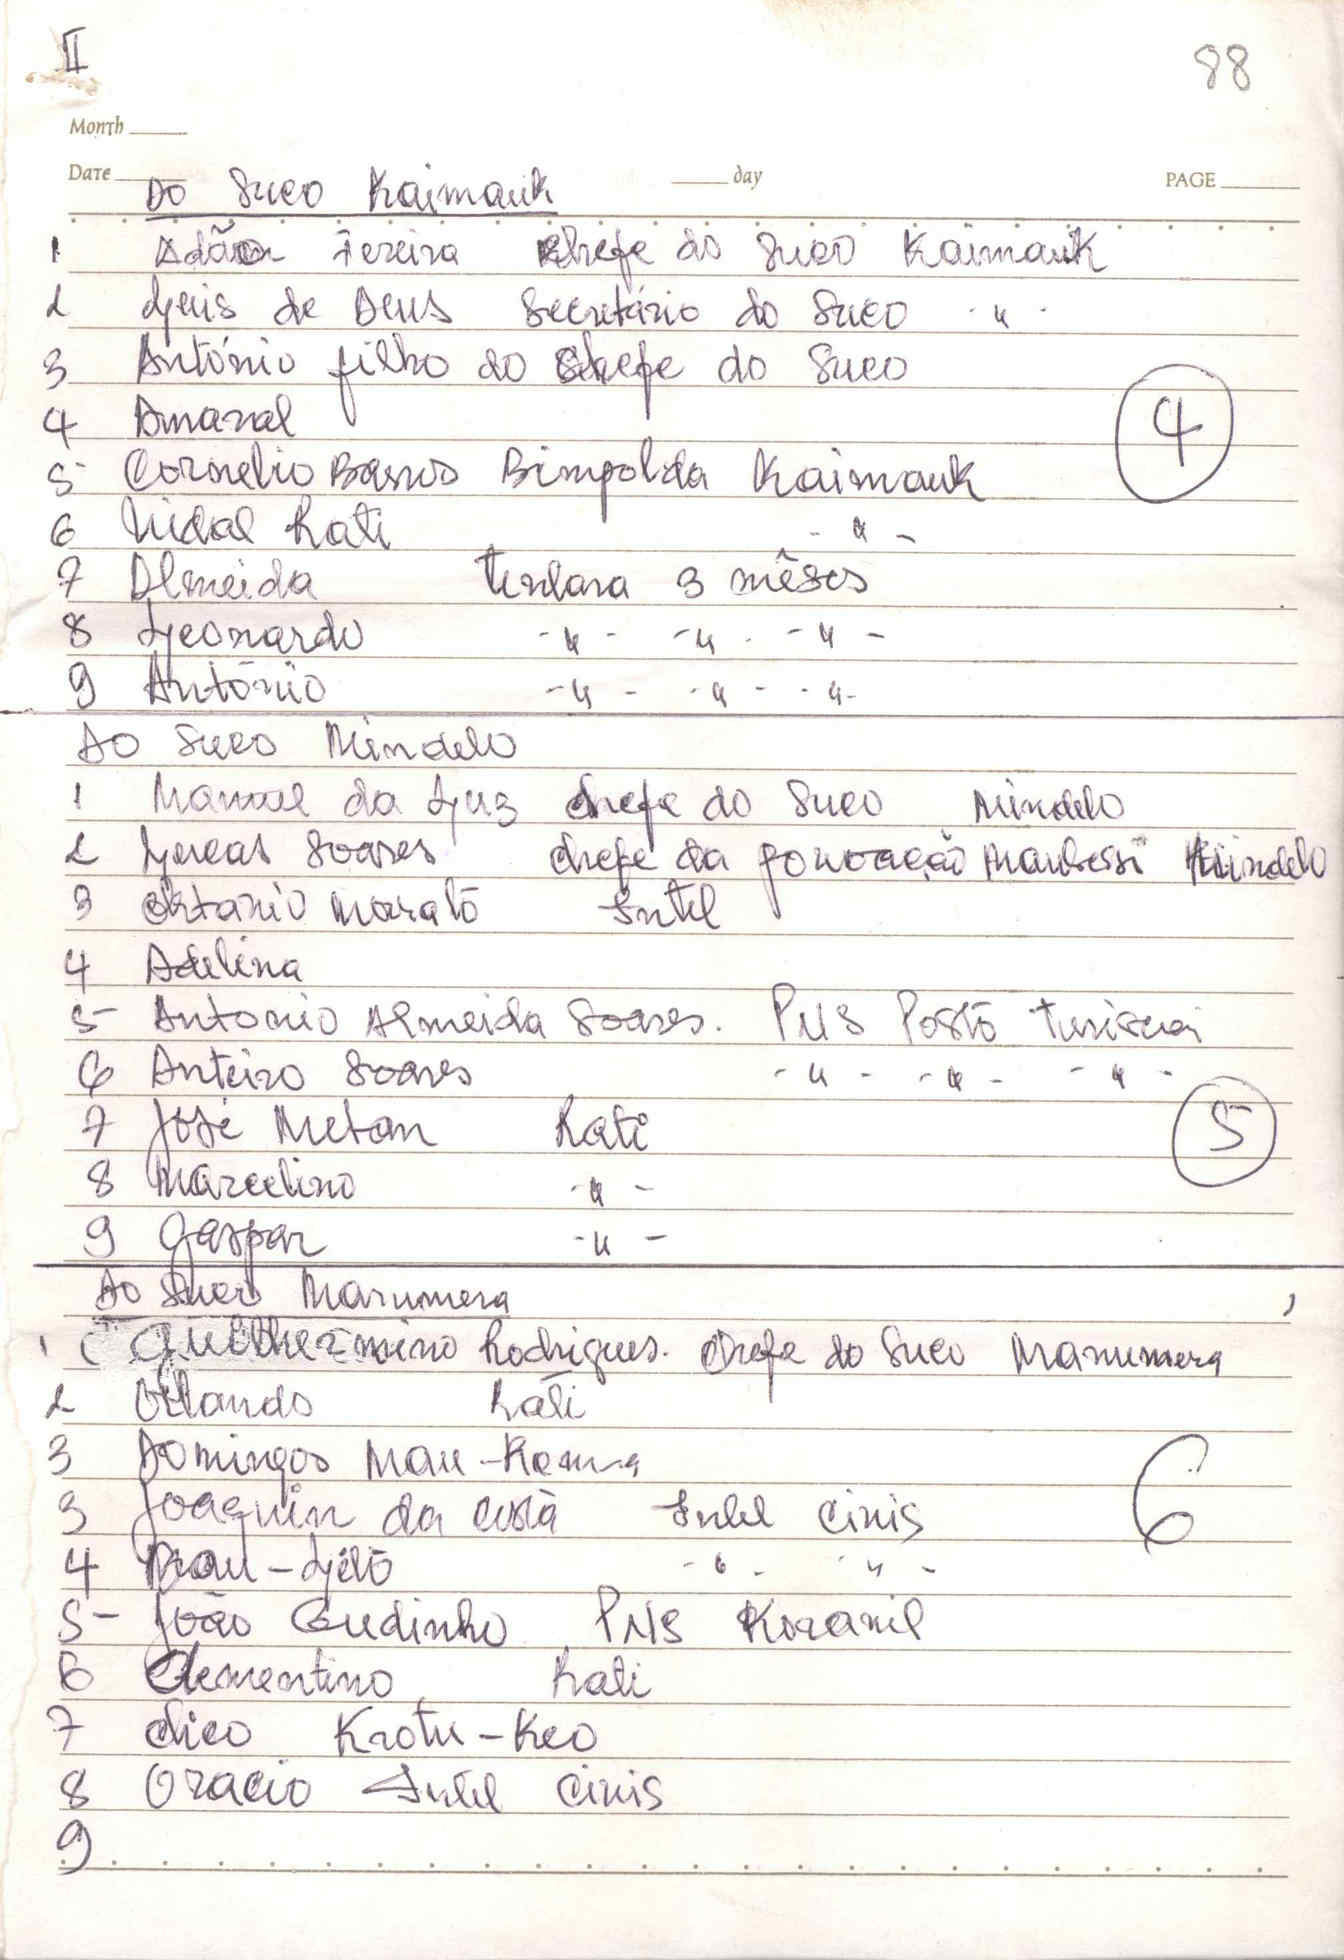 II
88
Month
Date
day
PAGE
Do Suco Kaimauk
1 Adão Fereira Chefe do Suco Kaimauk
2 Ljuis de Deus Secretário do Suco - " -
3 António filho do Chefe do Suco
4 Amaral
4
5 Cornelio Barros Bimpolda Kaimauk
6 Vidal Rati - " -
7 Almeida Tenlara 3 mêses
8 Ljeonardo - " - - " - - " -
9 António - " - - " - - " -
Do Suco Mindelo
1 Manuel da Ljuz Chefe do Suco Mindelo
2 Ljucas Soares Chefe da povoação Maubessi Mindelo
3 Oktavio Marató Intel
4 Adelina
5 Antonio Almeida Soares. PNS Postó Turiscai
6 Anteiro Soares - " - - " - - " -
7 José Metan Rati
5
8 Marcelino - " -
9 Gaspar - " -
Do Suco Manumera
1 Guilhermino Rodrigues. Chefe do Suco Manumera
2 Orlando Rati
3 Domingos Mau-
6
3 Joaquin da Costa Intel Cinis
4 Mau-Ljeló - " - - " -
5 João Gudinho PNS
6 Clementino Rati
7 Chico Krotu-Keo
8 Oracio Intel Cinis
9